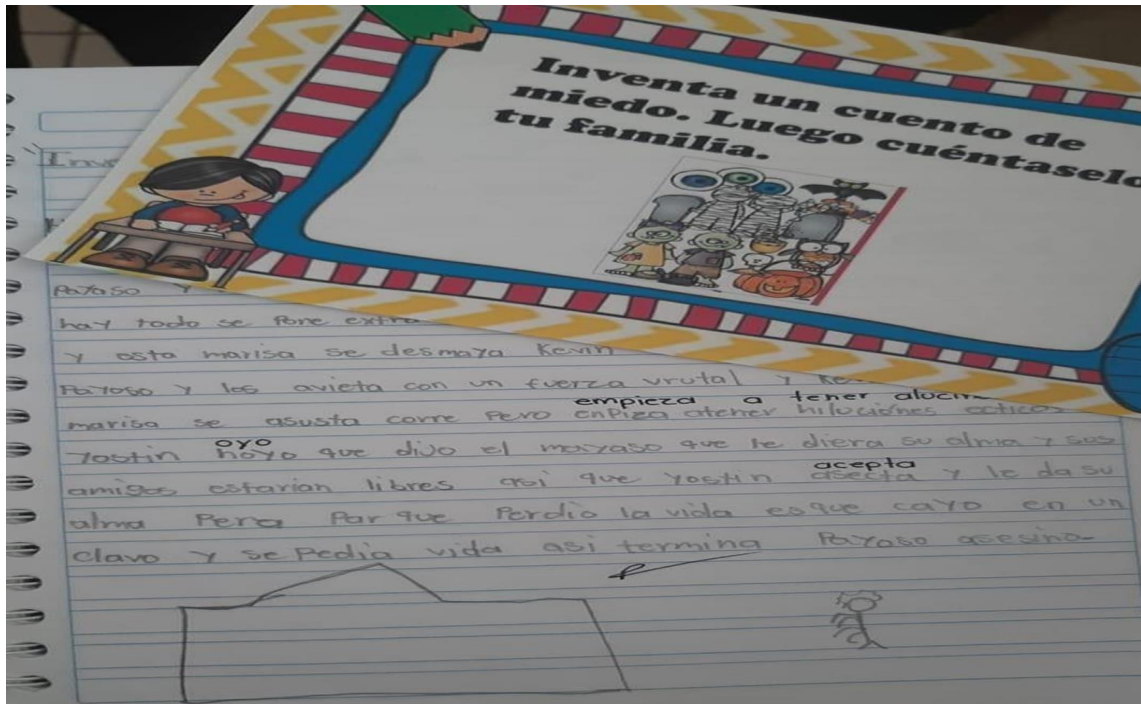 Inventa un cuento de
miedo. Luego cuéntaselo
tu familia.
Inve
Payaso y
hay todo se pone extra
y esta marisa se desmaya Kevin
Payoso y los avieta con un fuerza vrutal y
empieza a tener alucin
marisa se asusta corre pero enpiza atener hiluciónes
oyo
yostin hoyo que dijo el que le diera su alma y sus
acepta
amigos estarian libres asi que yostin asecta y le da su
alma Pero Par que Perdio la vida es que cayo en un
clavo y se Pedia vida asi termina Payaso asesino